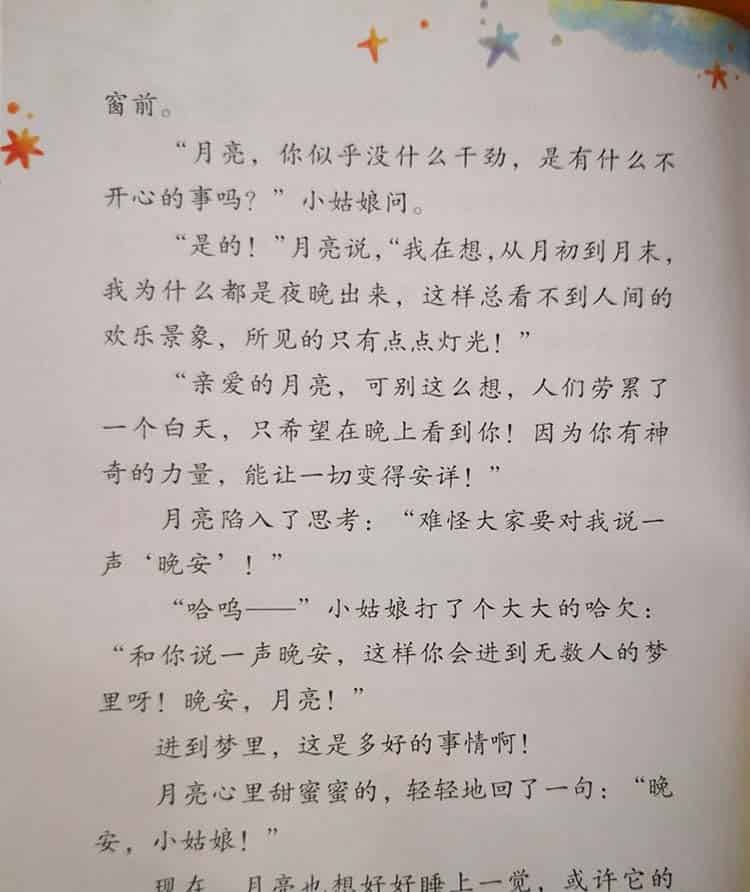 窗前。
“月亮，你似乎没什么干劲，是有什么不
开心的事吗？”小姑娘问。
“是的！”月亮说，“我在想，从月初到月末，
我为什么都是夜晚出来，这样总看不到人间的
欢乐景象，所见的只有点点灯光！”
“亲爱的月亮，可别这么想，人们劳累了
一个白天，只希望在晚上看到你！因为你有神
奇的力量，能让一切变得安详！”
月亮陷入了思考：“难怪大家要对我说一
声‘晚安’！”
“哈呜——”小姑娘打了个大大的哈欠：
“和你说一声晚安，这样你会进到无数人的梦
里呀！晚安，月亮！”
进到梦里，这是多好的事情啊！
月亮心里甜蜜蜜的，轻轻地回了一句：“晚
安，小姑娘！”
现在，月亮也想好好睡上一觉，或许它的